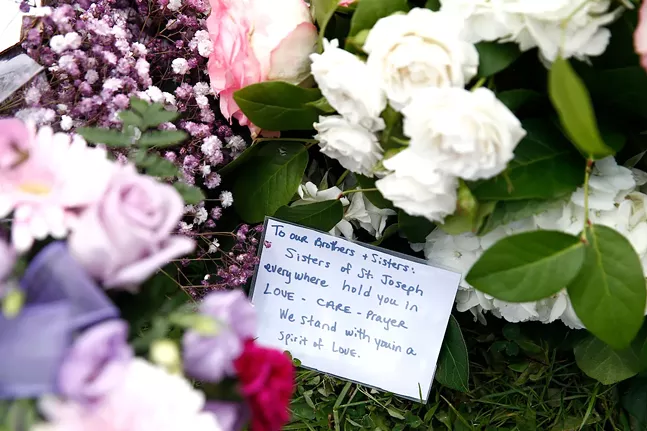 To our Brothers + Sisters:
Sisters of St. Joseph
everywhere hold you in
LOVE - CARE - Prayer
We stand with you in a
spirit of LOVE.